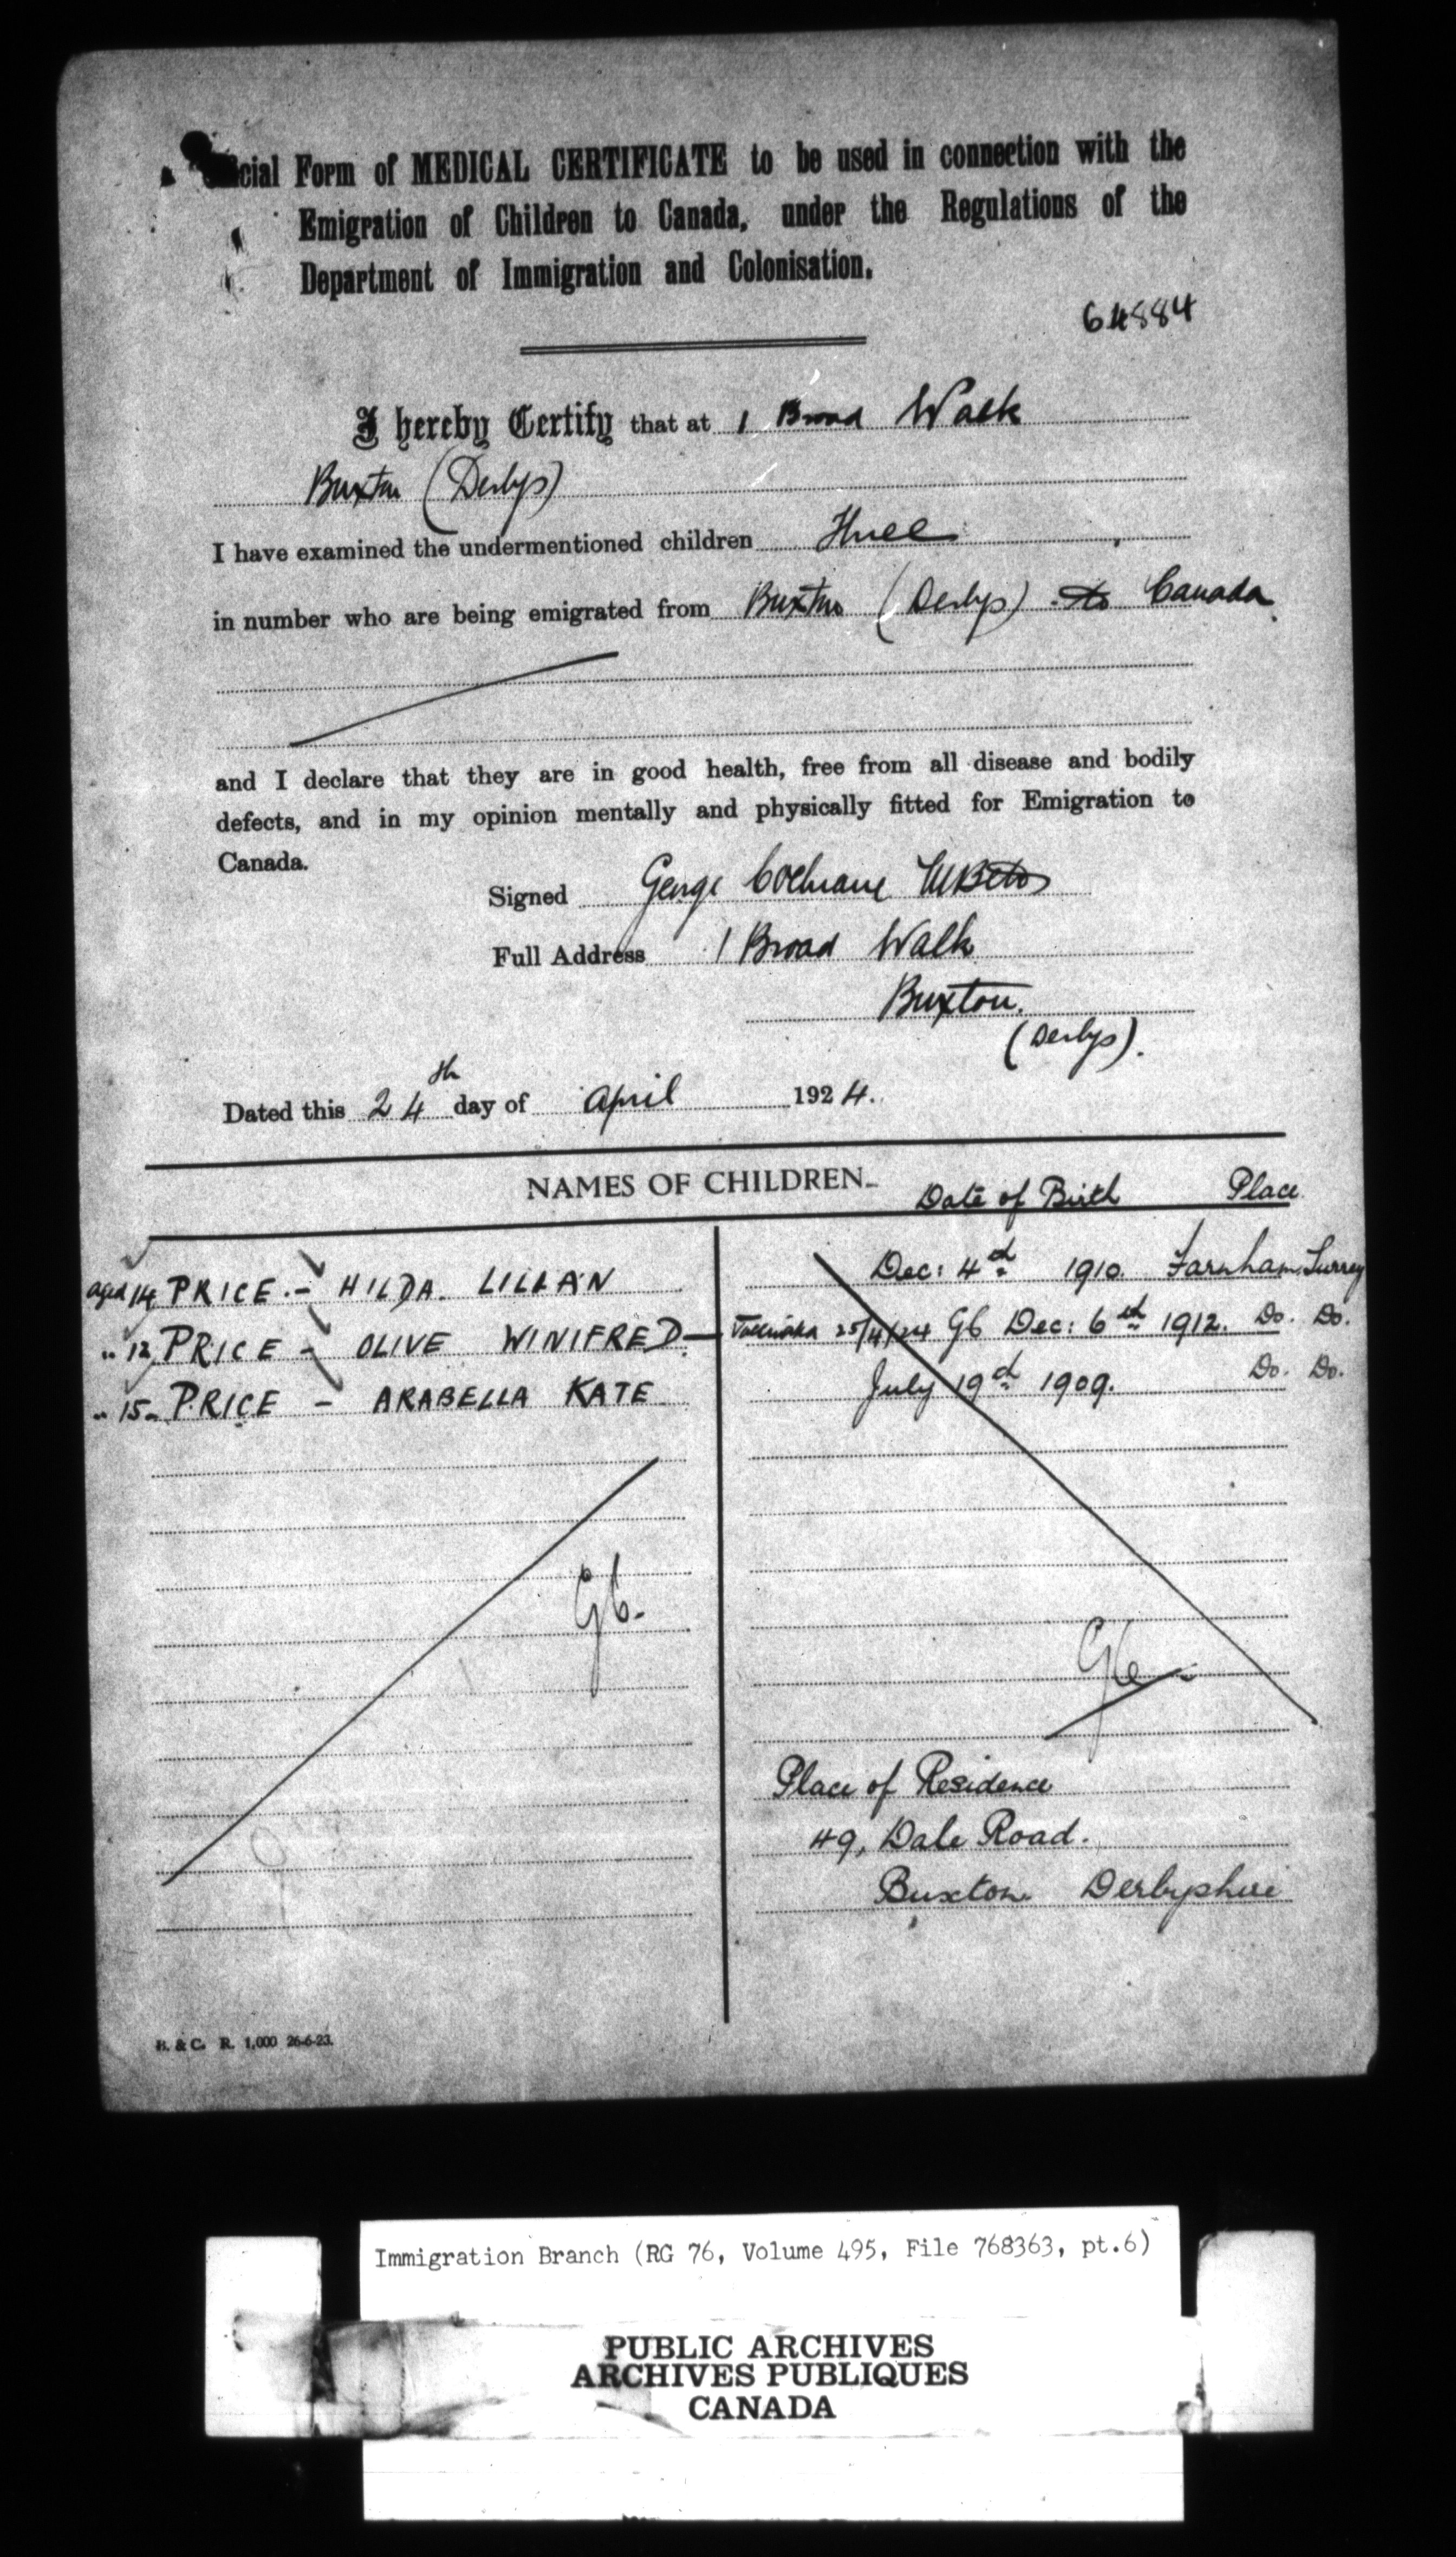 cial Form of MEDICAL CERTIFICATE to be used in connection with the
Emigration of Children to Canada, under the Regulations of the
Department of Immigration and Colonisation.
64884
I hereby Certify that at 1 Broad Walk
Buxton (Derbys)
I have examined the undermentioned children Three
in number who are being emigrated from Buxton (Derbys) to Canada.
and I declare that they are in good health, free from all disease and bodily
defects, and in my opinion mentally and physically fitted for Emigration to
Canada.
Signed George Cochrane
Full Address 1 Broad Walk
Buxton.
(Derbys).
Dated this 24th day of April 1924.
NAMES OF CHILDREN Date of Birth Place
aged 14 PRICE - HILDA. LILLAN Dec: 4d 1910. Farnham. Surrey
" 12 PRICE - OLIVE WINIFRED 25/4/24 GC Dec: 6th 1912. Do. Do.
" 15 PRICE - ARABELLA KATE July 19d 1909. Do. Do.
GC.
GC
Place of Residence
49, Dale Road.
Buxton Derbyshire
B. & C. R. 1,000 26-6-23.
Immigration Branch (RG 76, Volume 495, File 768363, pt.6)
PUBLIC ARCHIVES
ARCHIVES PUBLIQUES
CANADA